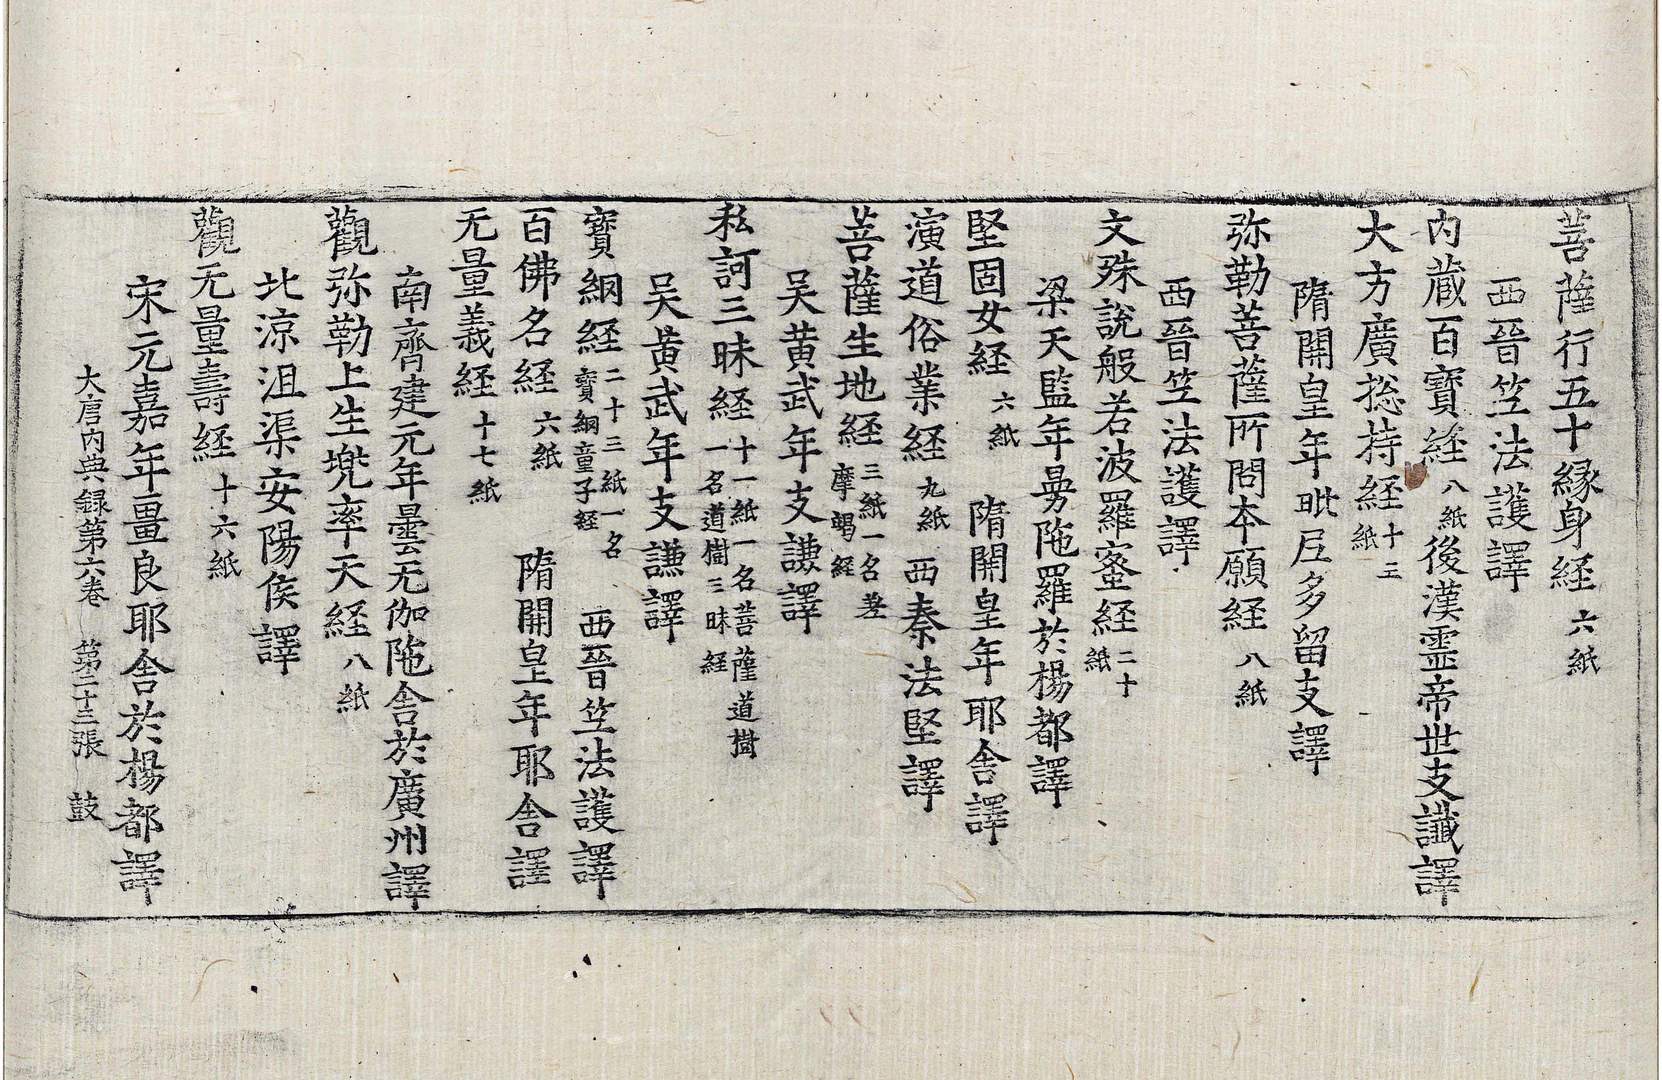 菩薩行五十緣身經 六紙
西晉竺法護譯
内蔵百寶経 八紙 後漢霊帝世支讖譯
大方廣捴持経 十三紙
隋開皇年毗尼多留支譯
弥勒菩薩所問本願経 八紙
西晉竺法護譯
文殊說般若波羅蜜経 二十紙
梁天監年曼陁羅於楊都譯
堅固女経 六紙 隋開皇年耶舎譯
演道俗業経 九紙 西秦法堅譯
菩薩生地経 三紙一名差摩竭経
吴黄武年支謙譯
私訶三昧経 十一紙一名菩薩道樹一名道樹三昧経
吴黄武年支謙譯
寳網経 二十三紙一名寳網童子経 西晉竺法護譯
百佛名経 六紙 隋開皇年耶舎譯
无量義経 十七紙
南齊建元年曇无伽陁舎於廣州譯
觀弥勒上生兠率天経 八紙
北涼沮渠安陽侯譯
觀无量壽経 十六紙
宋元嘉年畺良耶舎於楊都譯
大唐内典録第六卷 第二十三張 鼓